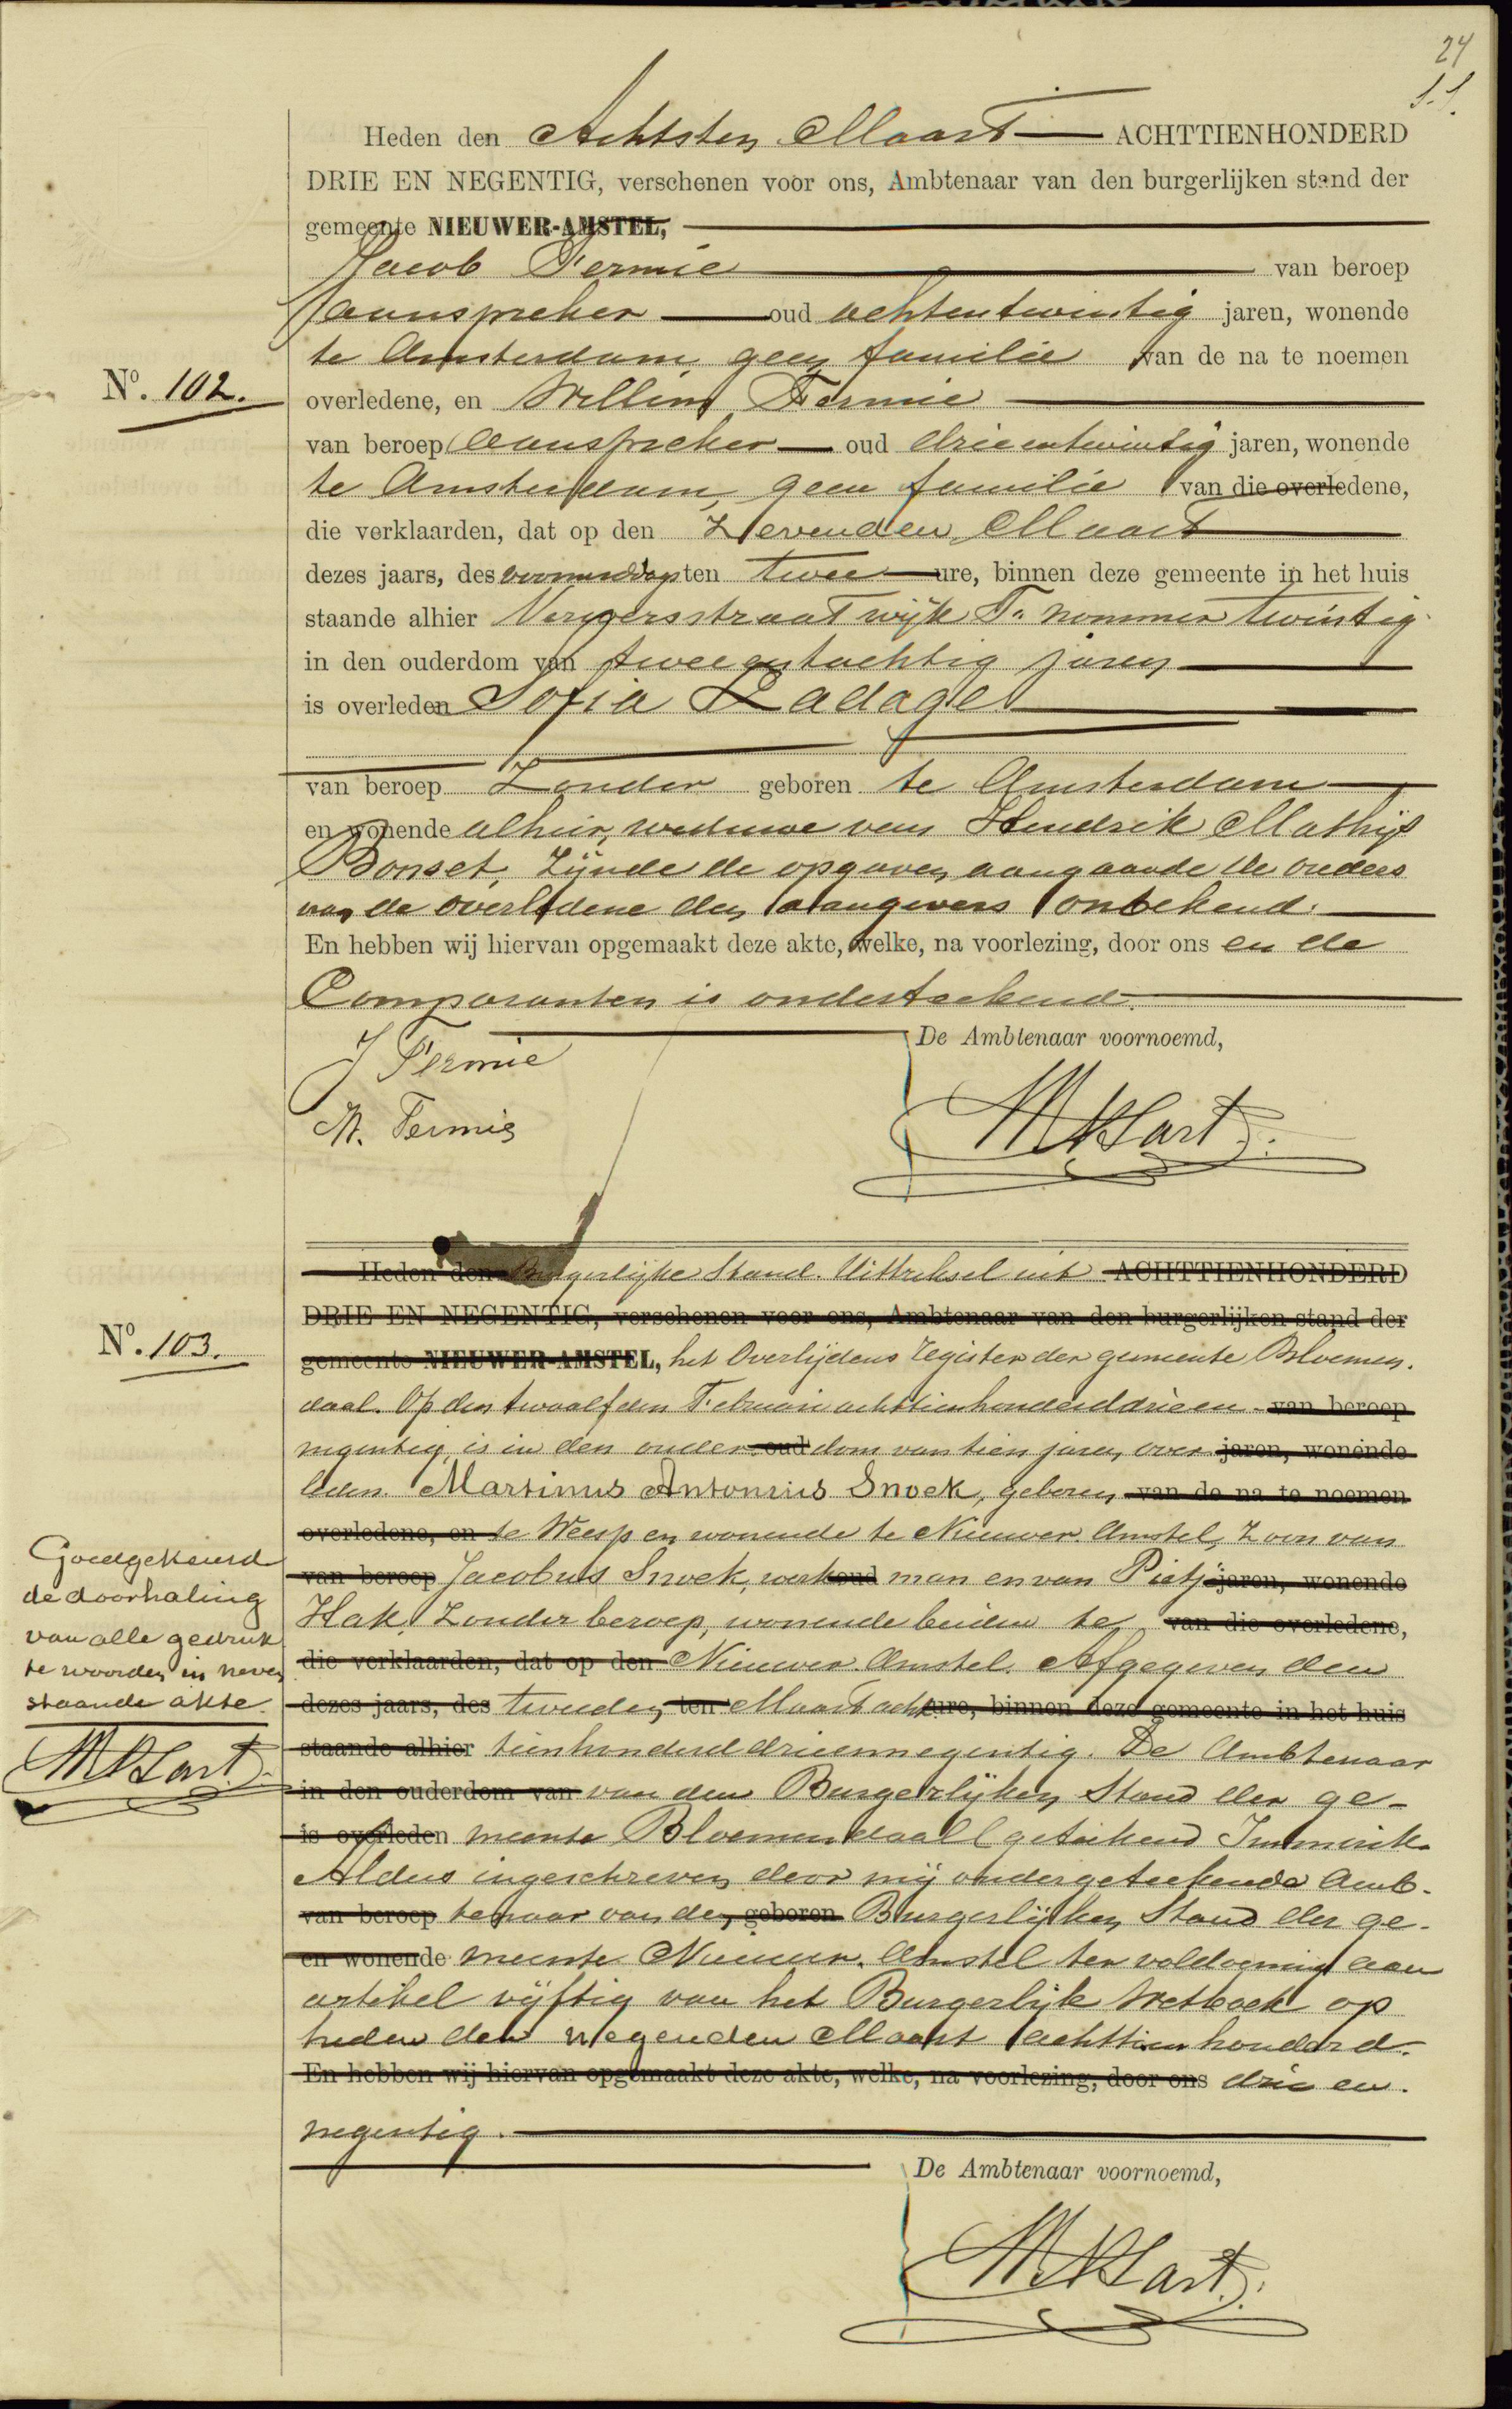 24
Heden den Achtsten Maart ACHTTIENHONDERD
DRIE EN NEGENTIG, verschenen voor ons, Ambtenaar van den burgerlijken stand der
gemeente NIEUWER-AMSTEL,
Jacob Fermie van beroep
aanspreker oud achtentwintig jaren, wonende
te Amsterdam geen familie van de na te noemen
No. 102.
overledene, en Willem Fermie
van beroep aanspreker oud drieentwintig jaren, wonende
te Amsterdam, geen familie van die overledene,
die verklaarden, dat op den Zevenden Maart
dezes jaars, des voormiddags ten twee ure, binnen deze gemeente in het huis
staande alhier Vergersstraat wijk F. nommer twintig
in den ouderdom van tweeentachtig jaren
is overleden Sofia Ladage
van beroep Zonder geboren te Amsterdam
en wonende alhier, weduwe van Hendrik Mathijs
Bonset, Zijnde de opgaven aangaande de ouders
van de overledene den aangevers onbekend.
En hebben wij hiervan opgemaakt deze akte, welke, na voorlezing, door ons en de
Comparanten is onderteekend.
De Ambtenaar voornoemd,
J Fermie
W. Fermie
Heden den Burgerlijke Stand. Uittreksel uit ACHTTIENHONDERD
DRIE EN NEGENTIG, verschenen voor ons, Ambtenaar van den burgerlijken stand der
No. 103.
gemeente NIEUWER-AMSTEL, het Overlijdens register der gemeente Bloemen-
daal. Op den twaalfden Februari achttienhonderddrieen- van beroep
negentig is in den ouder- oud dom van tien jaren over- jaren, wonende
leden Martinus Antonius Snoek, geboren van de na te noemen
overledene, en te Weesp en wonende te Nieuwer-Amstel, Zoon van
van beroep Jacobus Snoek, werk oud man en van Pietje jaren, wonende
Hak, Zonder beroep, wonende beiden te van die overledene,
die verklaarden, dat op den Nieuwer-Amstel. Afgegeven den
dezes jaars, des tweeden ten Maart acht ure, binnen deze gemeente in het huis
staande alhier tienhonderddrieennegentig. De Ambtenaar
in den ouderdom van van den Burgerlijken Stand der ge-
is overleden meente Bloemendaal (geteekend
Aldus ingeschreven door mij ondergeteekende Amb-
van beroep tenaar van den geboren Burgerlijken Stand der ge-
en wonende meente Nieuwer-Amstel ter voldoening aan
artikel vijftig van het Burgerlijk Wetboek op
heden den negenden Maart achttienhonderd-
En hebben wij hiervan opgemaakt deze akte, welke, na voorlezing, door ons drie en-
negentig.
De Ambtenaar voornoemd,
Goedgekeurd
de doorhaling
van alle gedruk
te woorden in neven
staande akte.